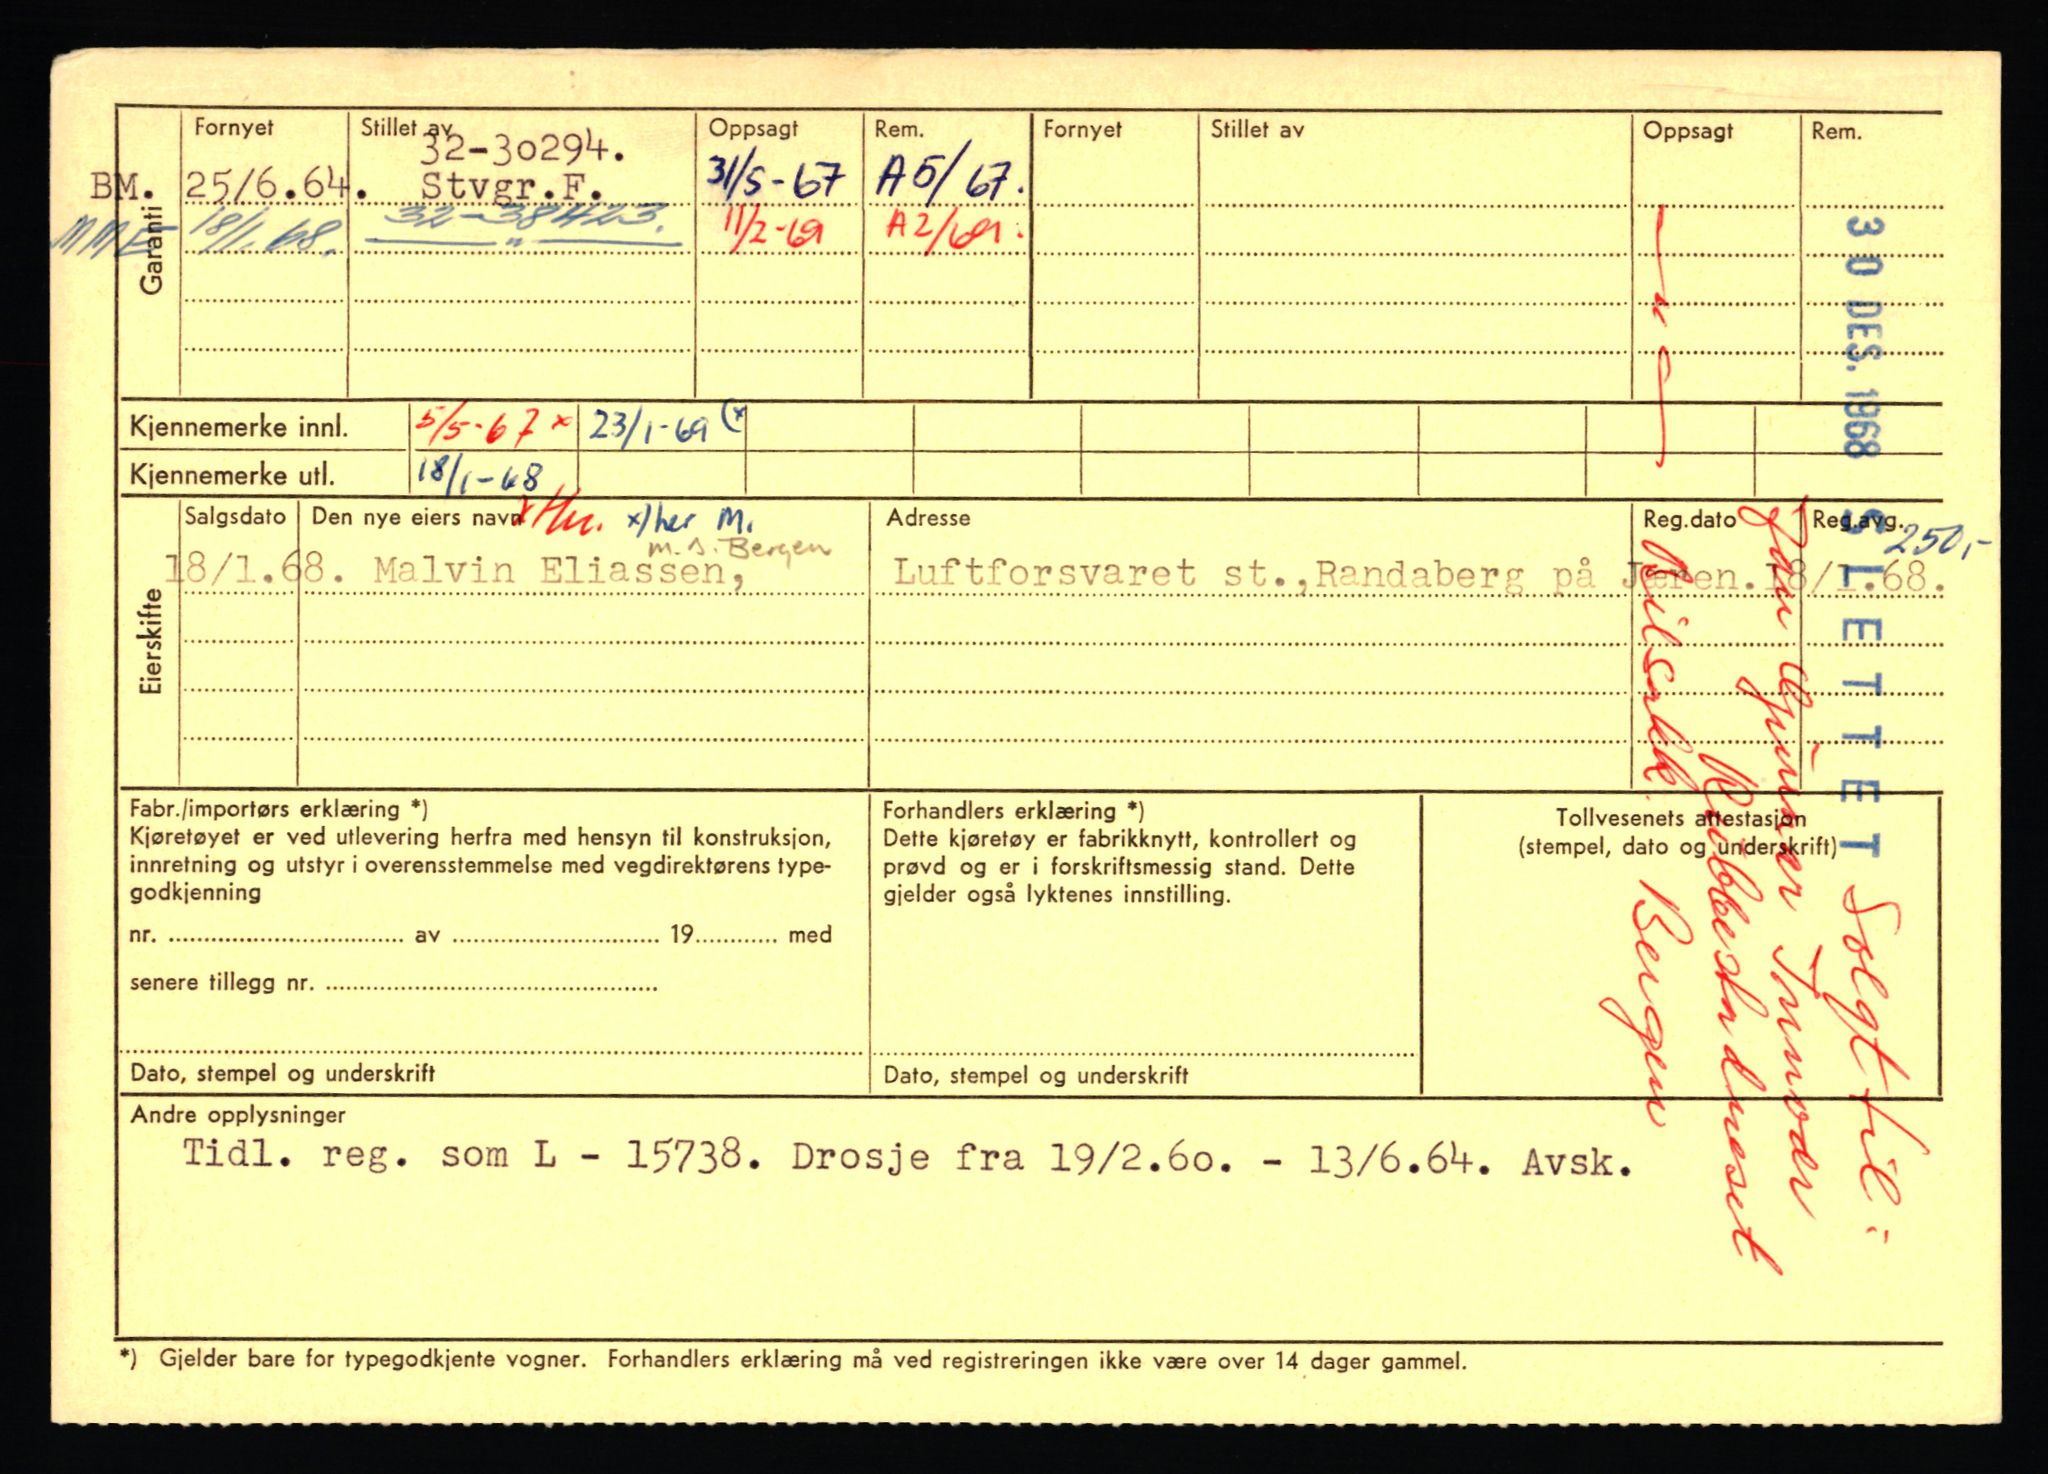 Fornyet Stillet av Oppsagt Rem. Fornyet Stillet av Oppsagt Rem.
32-30294.
BM. 25/6.64. Stvgr.F. 31/5-67 A5/67.
MME 18/1.68. 32-38423. 11/2-69 A2/69.
— " —
Garanti
— " —
Kjennemerke innl. 5/5-67 x 23/1-69 (x
Kjennemerke utl. 18/1-68
Salgsdato Den nye eiers navn x/her M. Adresse Reg.dato Reg.avg. 250,-
m. s. Bergen
18/1.68. Malvin Eliassen, Luftforsvaret st.,Randaberg på Jæren.18/1.68.
Eierskifte
30 DES. 1968 SLETTET
Solgt til:
Jan Gunnar Tormodr
Kubbestadneset
Bilsakk. Bergen
Fabr./importørs erklæring *)
Kjøretøyet er ved utlevering herfra med hensyn til konstruksjon,
innretning og utstyr i overensstemmelse med vegdirektørens type-
godkjenning
nr. .................. av .................. 19............ med
senere tillegg nr. ..................
Dato, stempel og underskrift
Forhandlers erklæring *)
Dette kjøretøy er fabrikknytt, kontrollert og
prøvd og er i forskriftsmessig stand. Dette
gjelder også lyktenes innstilling.
Dato, stempel og underskrift
Tollvesenets attestasjon
(stempel, dato og underskrift)
Andre opplysninger
Tidl. reg. som L - 15738. Drosje fra 19/2.60. - 13/6.64. Avsk.
*) Gjelder bare for typegodkjente vogner. Forhandlers erklæring må ved registreringen ikke være over 14 dager gammel.